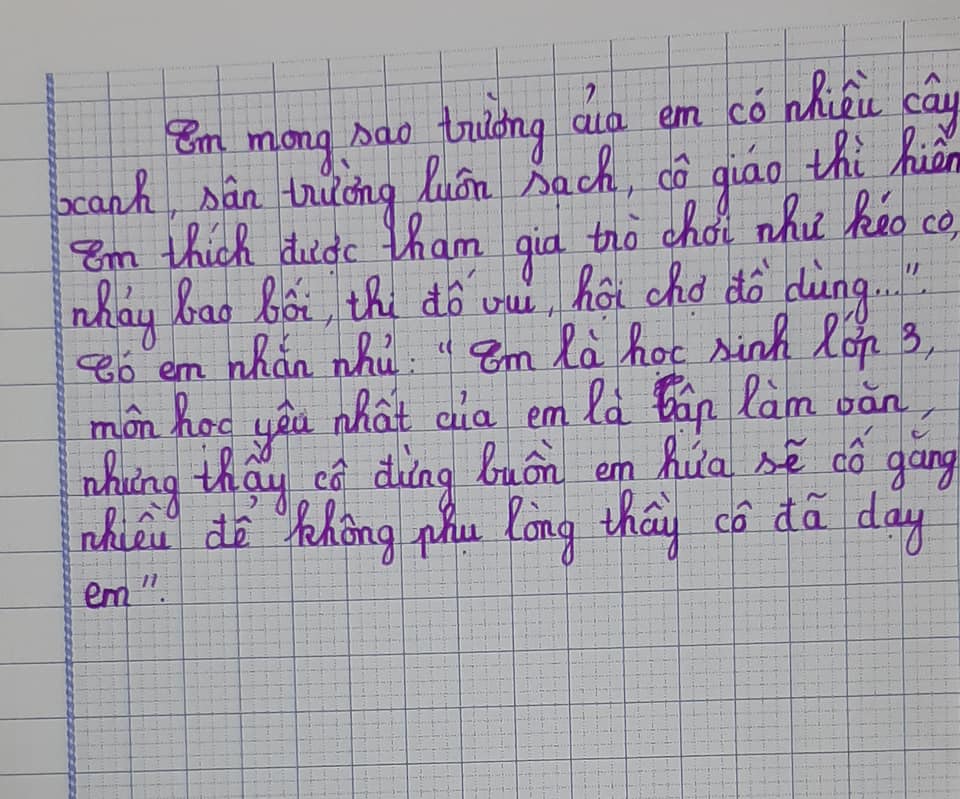 Em mong sao trường của em có nhiều cây
xanh, sân trường luôn sạch, cô giáo thì hiền
Em thích được tham gia trò chơi như kéo co,
nhảy bao bối, thi đố vui, hội chợ đồ dùng...".
Có em nhắn nhủ: "Em là học sinh lớp 3,
môn học yêu nhất của em là Tập làm văn,
nhưng thầy cô đừng buồn em hứa sẽ cố gắng
nhiều để không phụ lòng thầy cô đã dạy
em".